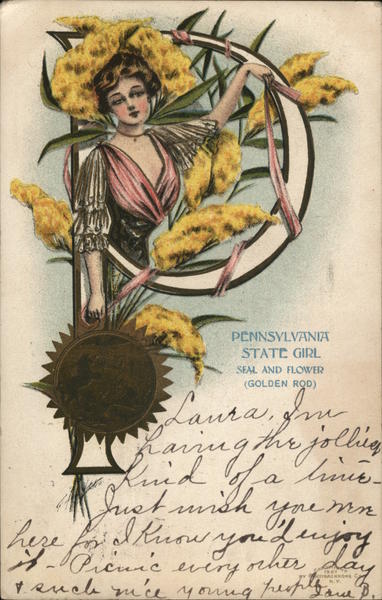 PENNSYLVANIA
STATE GIRL
SEAL AND FLOWER
(GOLDEN ROD)
Laura, I'm
having the jolliest
kind of a time -
Just wish you were
here for I know you'd enjoy
it - Picnic every other day
& such nice young people
Jane B.